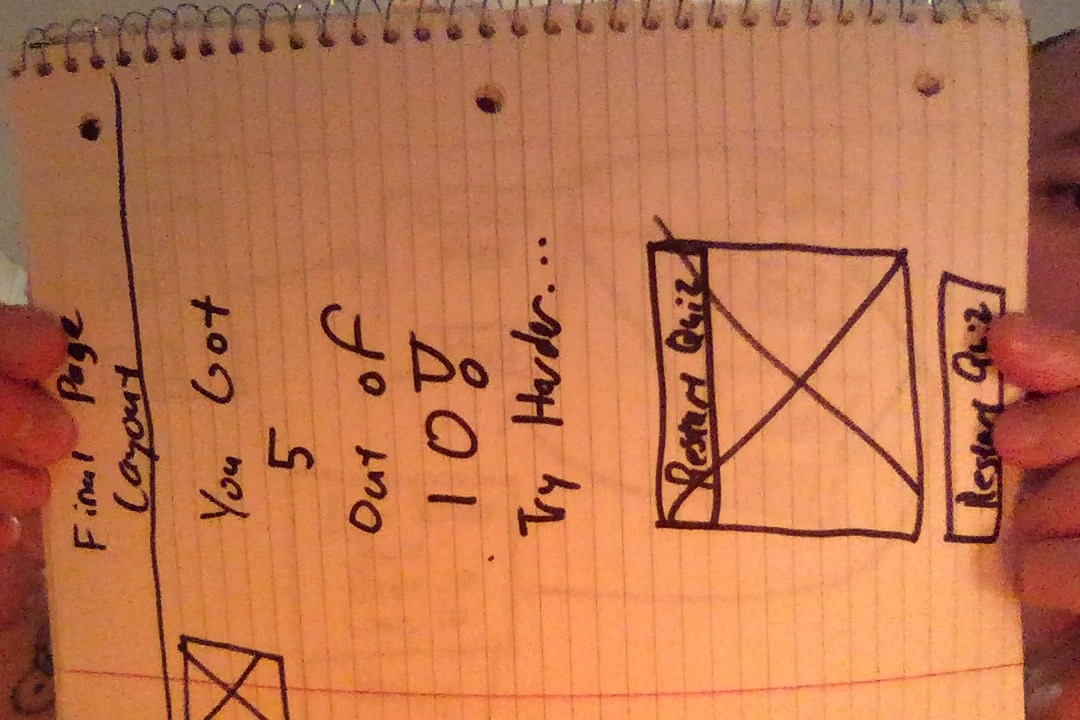 Final Page
Layout
You Got
5
Out of
10!
Try Harder...
Restart Quiz
Restart Quiz